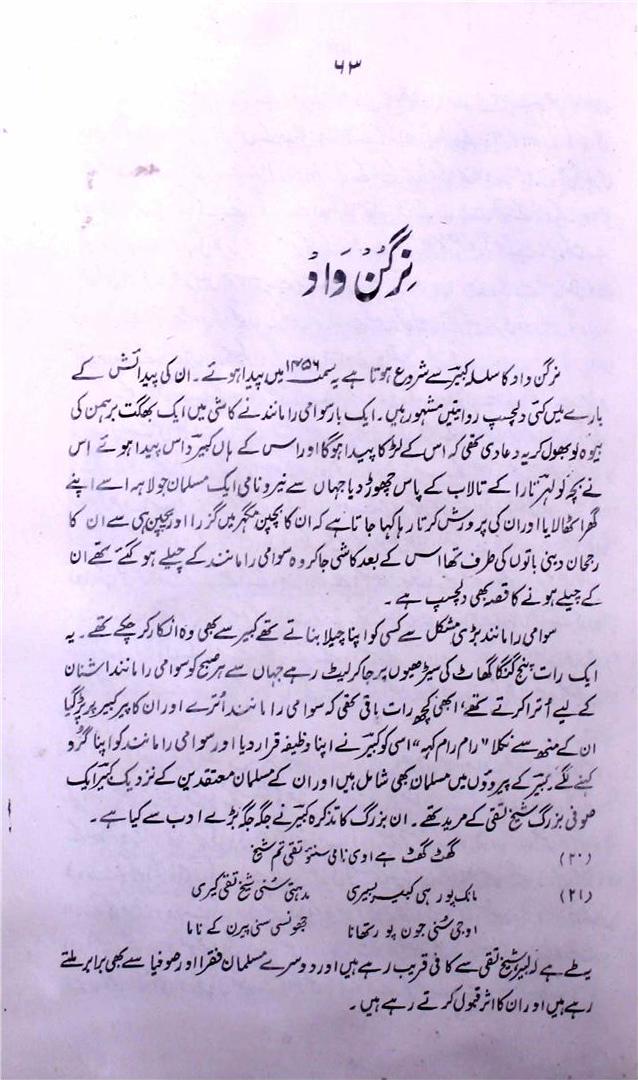 ۶۳
نِرگُن وَاد
نرگن واد کا سلسلہ کبیرؔ سے شروع ہوتا ہے یہ سمت ۱۴۵۶ میں پیدا ہوئے۔ ان کی پیدائش کے
بارے میں کئی دلچسپ روایتیں مشہور ہیں۔ ایک بار سوامی رامانند نے کاشی میں ایک بھگت برہمن کی
بیوہ کو بھول کر یہ دعا دی تھی کہ اس کے لڑکا پیدا ہوگا اور اس کے ہاں کبیر داس پیدا ہوئے اس
نے بچہ کو لہر تارا کے تالاب کے پاس چھوڑ دیا جہاں سے نیرو نامی ایک مسلمان جولاہہ اسے اپنے
گھر اٹھا لایا اور ان کی پرورش کرتا رہا کہا جاتا ہے کہ ان کا بچپن مگہر میں گزرا اور بچپن ہی سے ان کا
رجحان دینی باتوں کی طرف تھا اس کے بعد کاشی جا کر وہ سوامی رامانند کے چیلے ہو گئے تھے ان
کے چیلے ہونے کا قصہ بھی دلچسپ ہے۔
سوامی رامانند بڑی مشکل سے کسی کو اپنا چیلا بناتے تھے کبیر سے بھی وہ انکار کر چکے تھے۔ یہ
ایک رات پنچ گنگا گھاٹ کی سیڑھیوں پر جا کر لیٹ رہے جہاں سے ہر صبح کو سوامی رامانند اشنان
کے لیے اُترا کرتے تھے، ابھی کچھ رات باقی تھی کہ سوامی رامانند اُترے اور ان کا پیر کبیر پر پڑ گیا
ان کے منھ سے نکلا "رام رام کہہ" اسی کو کبیر نے اپنا وظیفہ قرار دیا اور سوامی رامانند کو اپنا گرو
کہنے لگے، کبیر کے پیروؤں میں مسلمان بھی شامل ہیں اور ان کے مسلمان معتقدین کے نزدیک کبیر ایک
صوفی بزرگ شیخ تقی کے مرید تھے۔ ان بزرگ کا تذکرہ کبیر نے جگہ جگہ بڑے ادب سے کیا ہے۔
(۲۰) گھٹ گھٹ ہے اوی ناسی سنؤ تقی تم شیخ
(۲۱) مانک پور ہی کبیر بسیری مدہتی سُنی شیخ تقی کیری
اوجی سُنی جون پور رستھانا جھونسی سنی پیرن کے ناما
یہ طے ہے کہ کبیر شیخ تقی سے کافی قریب رہے ہیں اور دوسرے مسلمان فقرا اور صوفیا سے بھی برابر ملتے
رہے ہیں اور ان کا اثر قبول کرتے رہے ہیں۔